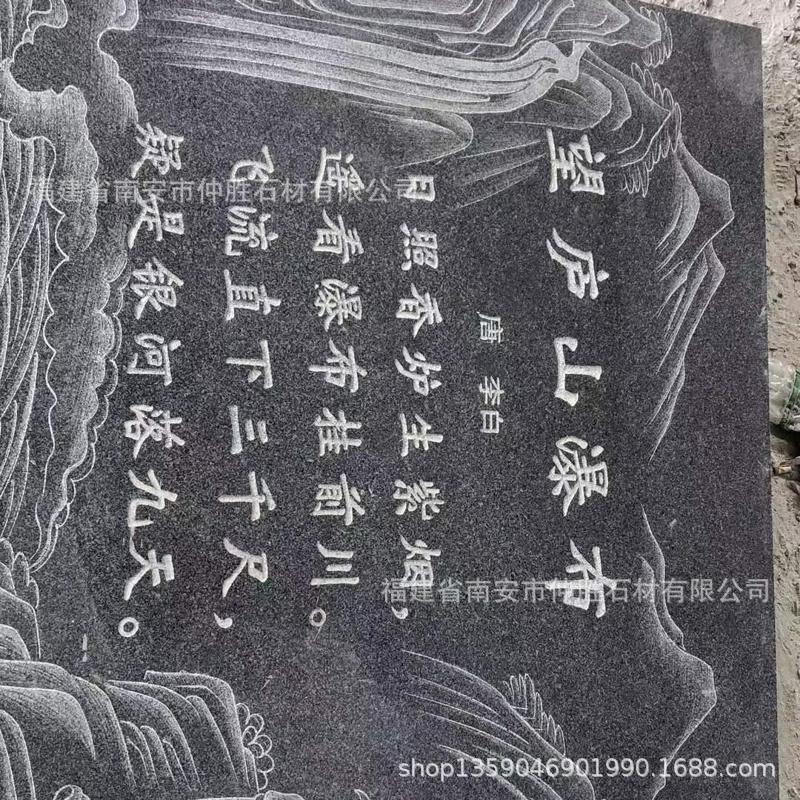 望庐山瀑布
唐 李白
日照香炉生紫烟,
遥看瀑布挂前川。
飞流直下三千尺,
疑是银河落九天。
福建省南安市仲胜石材有限公司
福建省南安市仲胜石材有限公司
shop1359046901990.1688.com